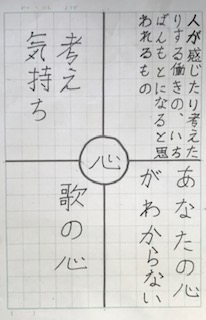 人が感じたり考えた
りする働きの、いち
ばんもとになると思
われるもの
考え
気持ち
心
あなたの心
がわからない
歌の心